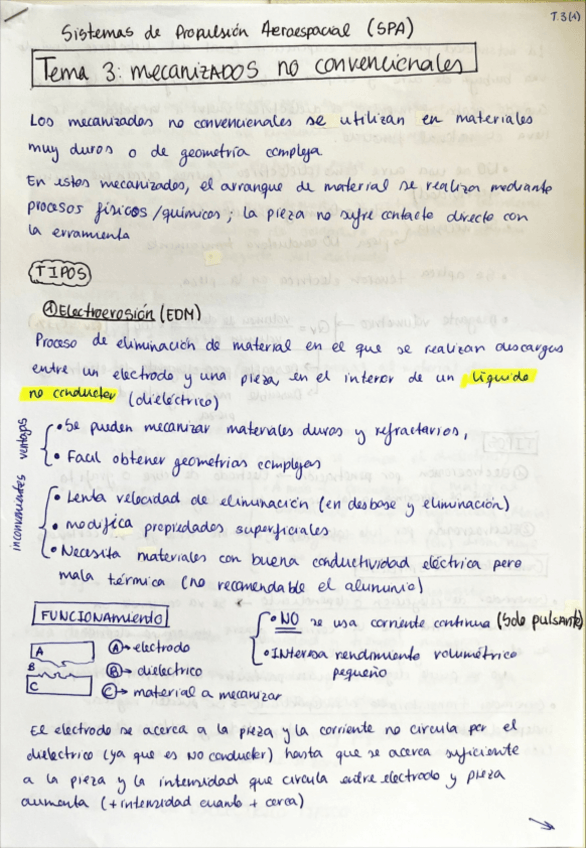 T.3(1)
Sistemas de Propulsión Aeroespacial (SPA)
Tema 3: mecanizados no convencionales
Los mecanizados no convencionales se utilizan en materiales
muy duros o de geometría compleja
En estos mecanizados, el arranque de material se realiza mediante
procesos físicos/químicos; la pieza no sufre contacto directo con
la erramienta
TIPOS
① Electroerosión (EDM)
Proceso de eliminación de material en el que se realizan descargas
entre un electrodo y una pieza en el interior de un líquido
no conductor (dieléctrico)
ventajas
• Se pueden mecanizar materiales duros y refractarios,
• Facil obtener geometrías complejas
inconvenientes
• Lenta velocidad de eliminación (en desbase y eliminación)
• modifica propiedades superficiales
• Necesita materiales con buena conductividad eléctrica pero
mala térmica (no recomendable el aluminio)
FUNCIONAMIENTO
• NO se usa corriente continua (Solo pulsante)
• INteresa rendimiento volumétrico
pequeño
A
B
C
Ⓐ→ electrodo
Ⓑ→ dieléctrico
Ⓒ→ material a mecanizar
El electrodo se acerca a la pieza y la corriente no circula por el
dieléctrico (ya que es NO conductor) hasta que se acerca suficiente
a la pieza y la intensidad que circula entre electrodo y pieza
aumenta (+ intensidad cuanto + cerca)